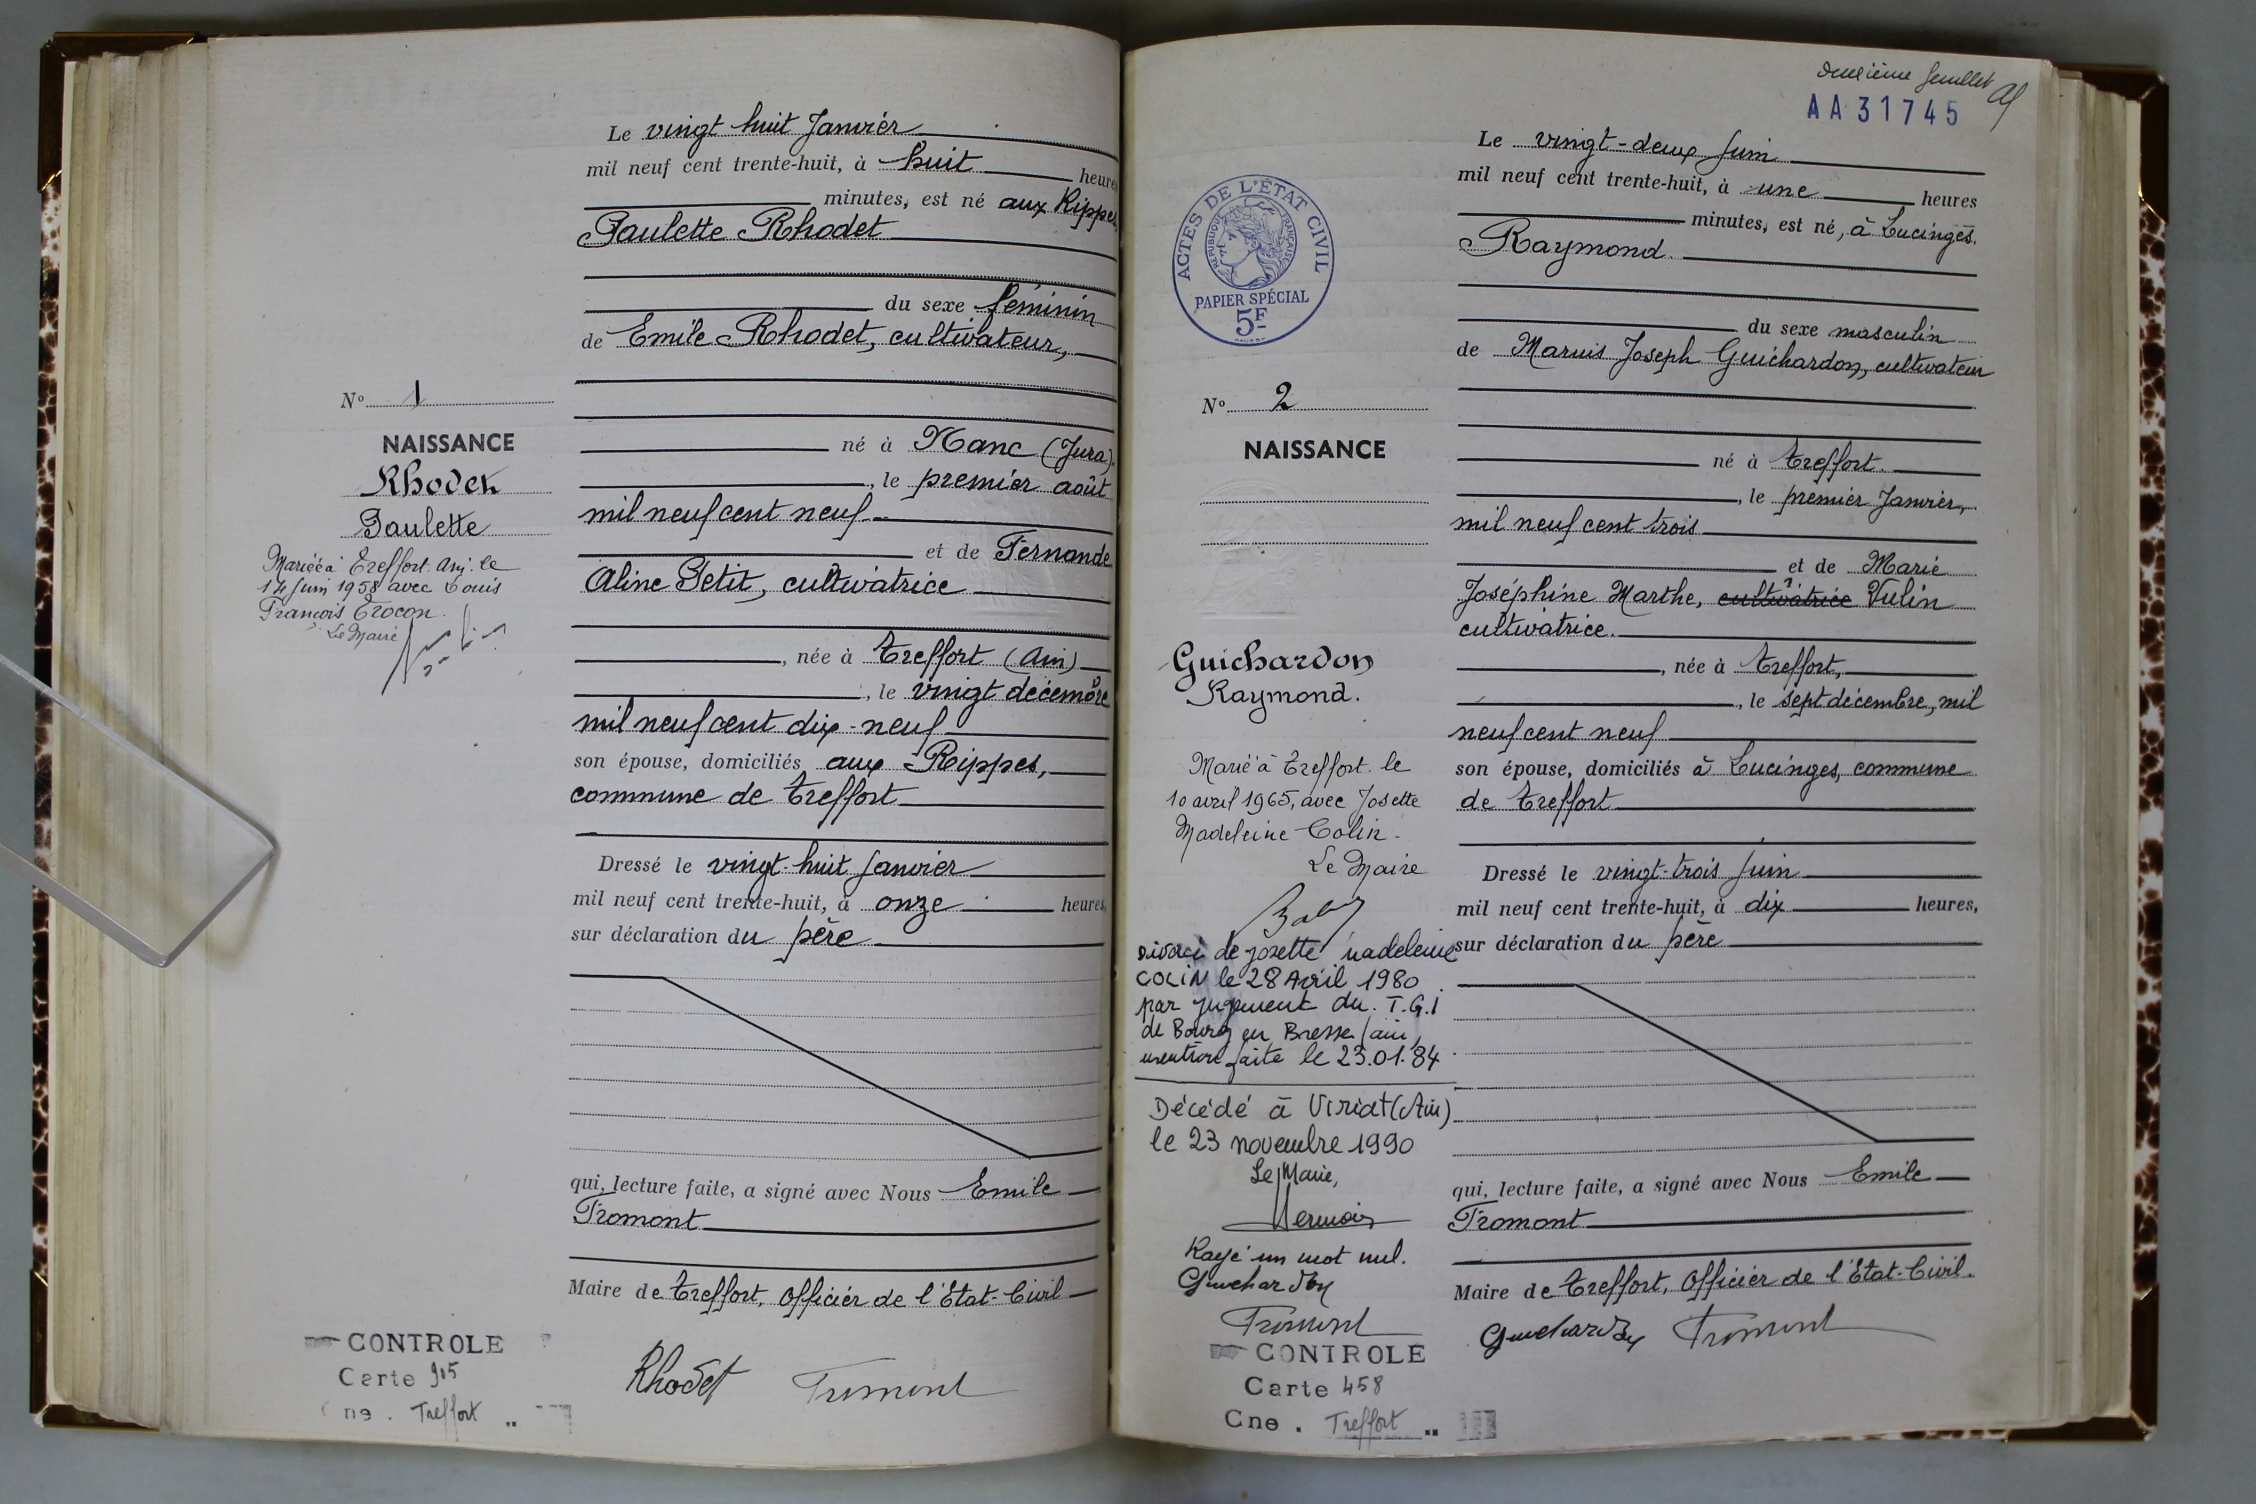 Le vingt huit Janvier
mil neuf cent trente-huit, à huit heures
minutes, est né aux Rippes,
Paulette Rhodet
du sexe féminin
de Emile Rhodet, cultivateur,
né à Nanc (Jura).
, le premier août
mil neuf cent neuf
et de Fernande
Aline Petit, cultivatrice
, née à Treffort (Ain)
, le vingt décembre
mil neuf cent dix-neuf
son épouse, domiciliés aux Rippes,
commune de Treffort
Dressé le vingt-huit Janvier
mil neuf cent trente-huit, à onze heures,
sur déclaration du père
qui, lecture faite, a signé avec Nous Emile
Fromont
Maire de Treffort, Officier de l'Etat-Civil
Rhodet Fromont
N° 1
NAISSANCE
Rhodet
Paulette
Mariée à Treffort Ain. le
14 Juin 1958 avec Louis
François Trocon.
Le Maire
CONTROLE
Carte 905
ne . Treffort
deuxième feuillet
AA31745
Le vingt-deux Juin
mil neuf cent trente-huit, à une heures
minutes, est né, à Lucinges.
Raymond
du sexe masculin
de Marius Joseph Guichardon, cultivateur
né à Treffort.
, le premier Janvier,
mil neuf cent trois
et de Marie
Joséphine Marthe, cultivatrice Vulin
cultivatrice.
, née à Treffort,
, le sept décembre, mil
neuf cent neuf
son épouse, domiciliés à Lucinges, commune
de Treffort
Dressé le vingt-trois Juin
mil neuf cent trente-huit, à dix heures,
sur déclaration du père
qui, lecture faite, a signé avec Nous Emile
Fromont
Maire de Treffort, Officier de l'Etat-Civil.
Guichardon Fromont
ACTES DE L'ÉTAT CIVIL
RÉPUBLIQUE FRANÇAISE
PAPIER SPÉCIAL
5F
N° 2
NAISSANCE
Guichardon
Raymond.
Marié à Treffort le
10 avril 1965, avec Josette
Madeleine Colin.
Le Maire
Divorcé de josette Madeleine
COLIN le 28 Avril 1980
par jugement du T.G.I
de Bourg en Bresse (ain)
mention faite le 23.01.84
Décédé à Viriat (Ain)
le 23 novembre 1990
Le Maire,
Rayé un mot nul.
Guichardon
Fromont
CONTROLE
Carte 458
Cne . Treffort